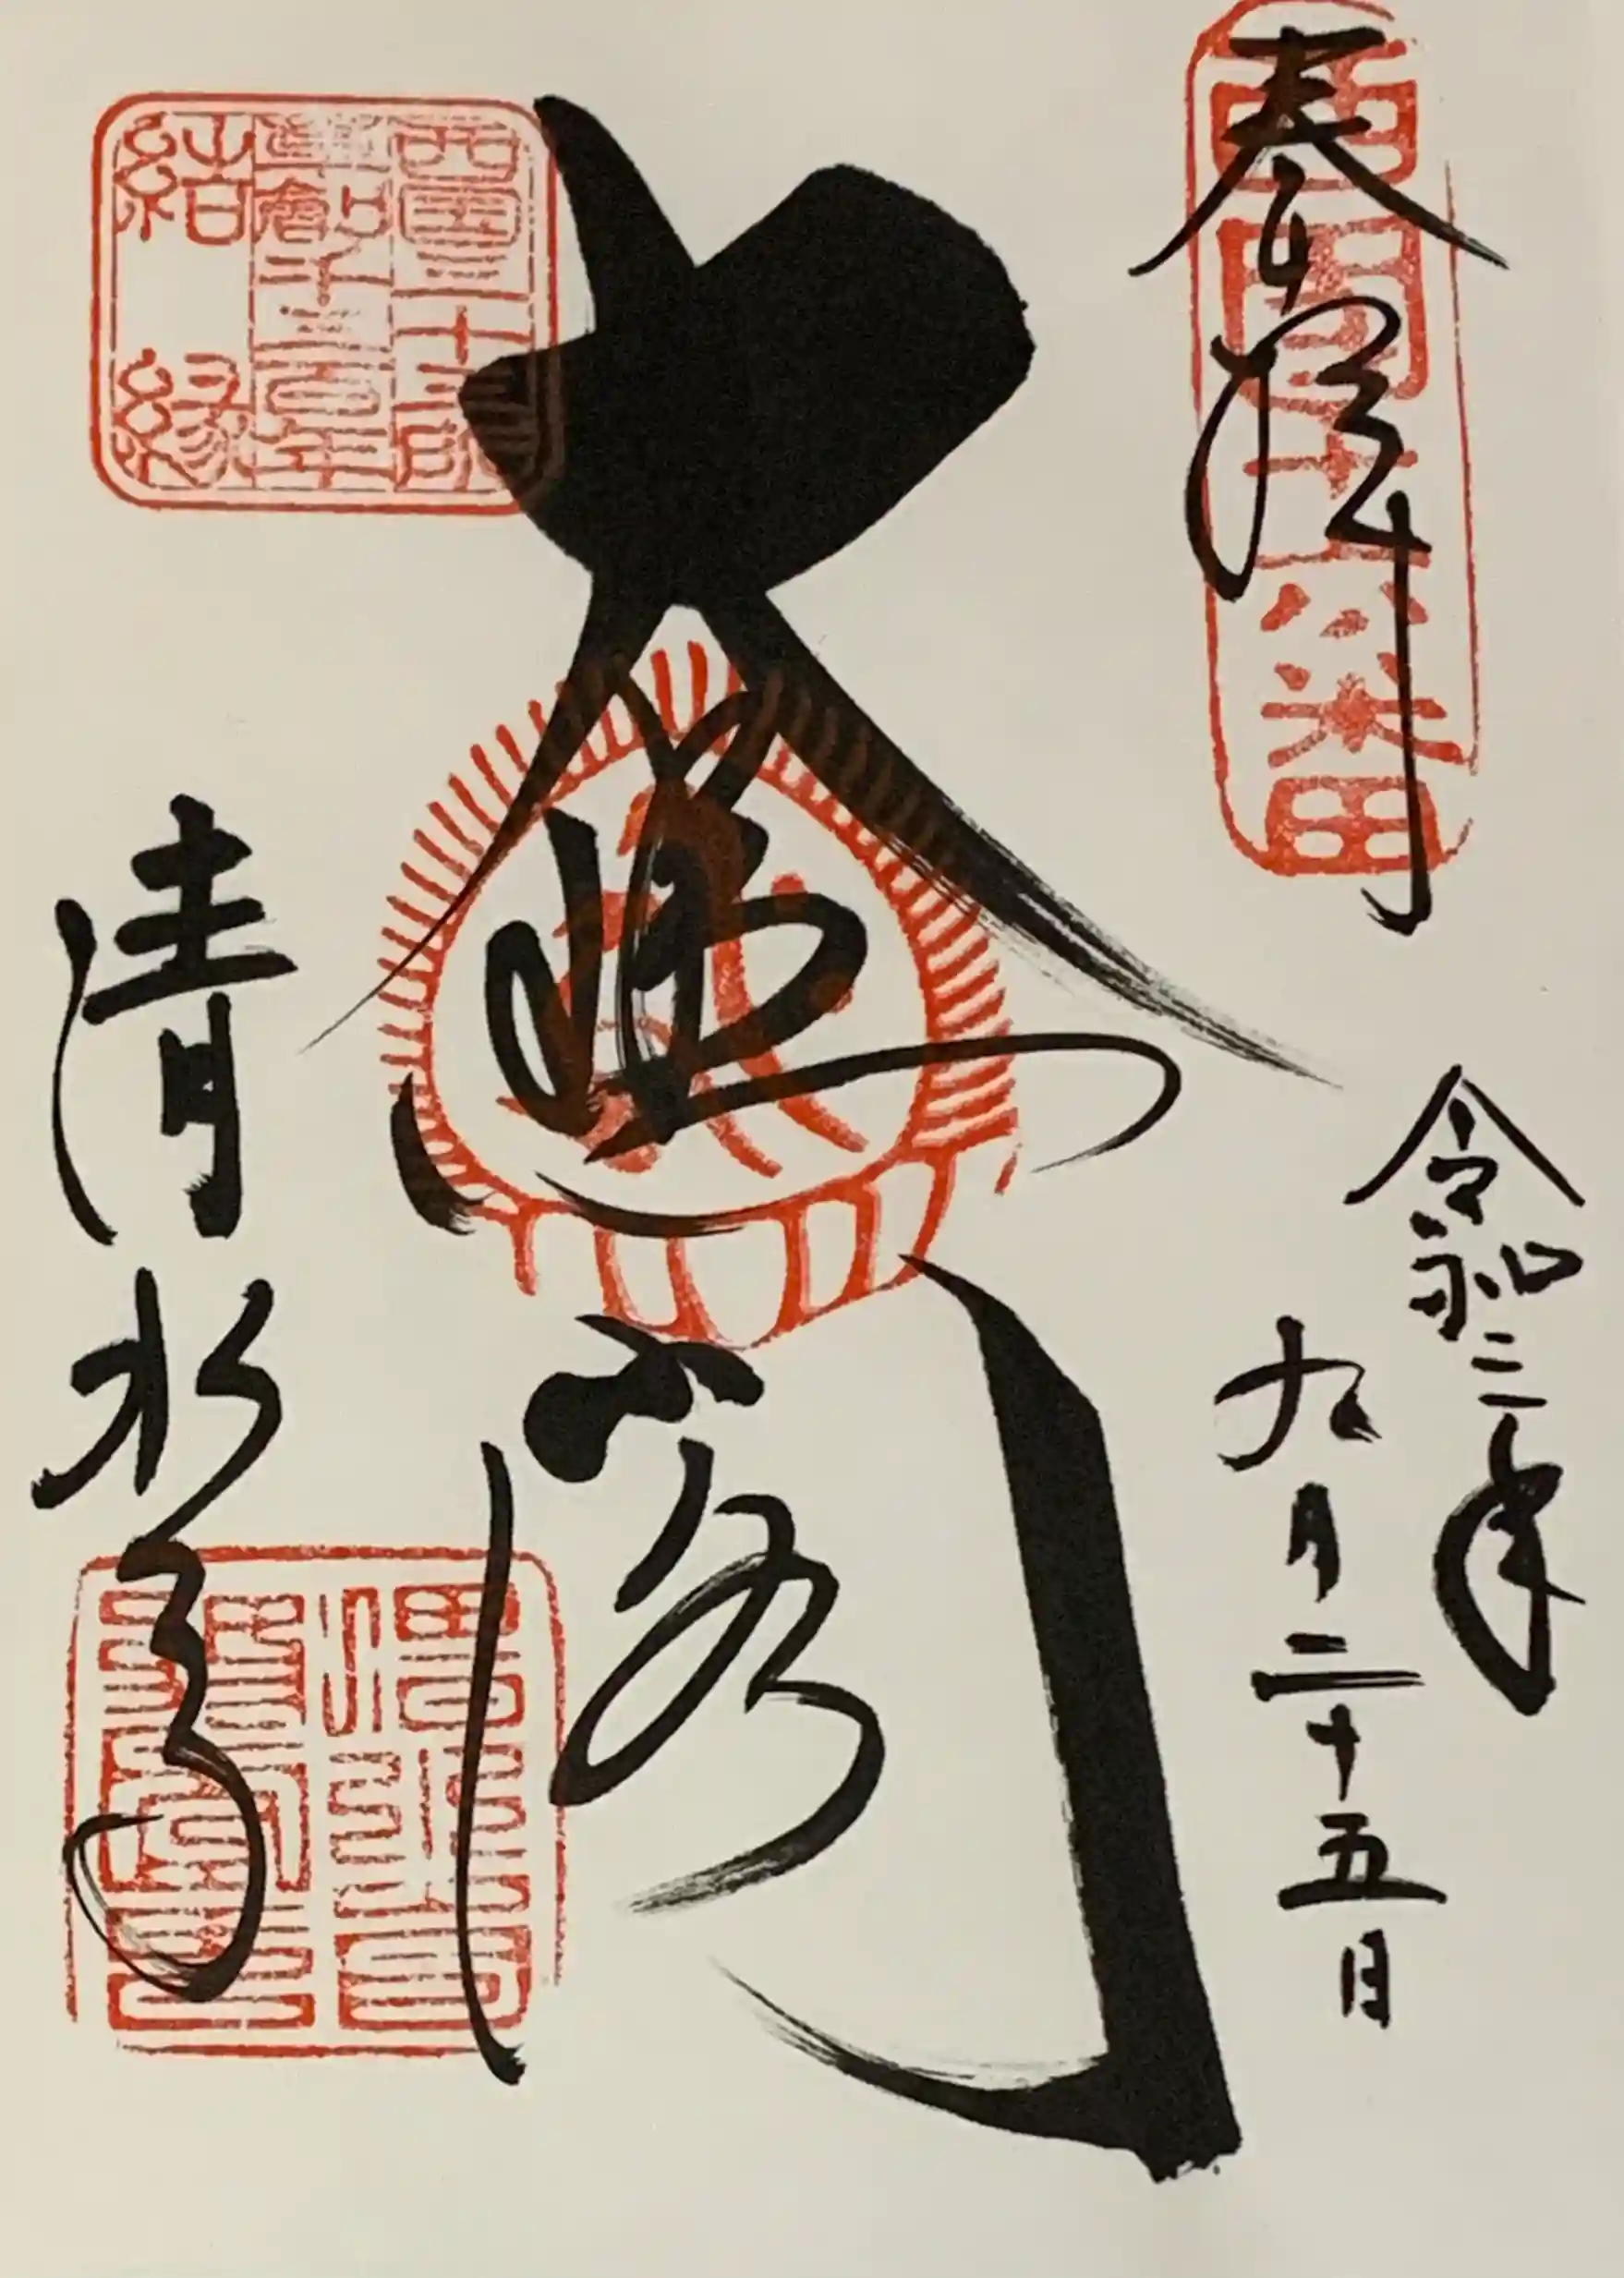 奉拝
西国十六番
令和二年
九月二十五日
大悲閣
西國三十三所
草創千三百年
結縁
清水寺